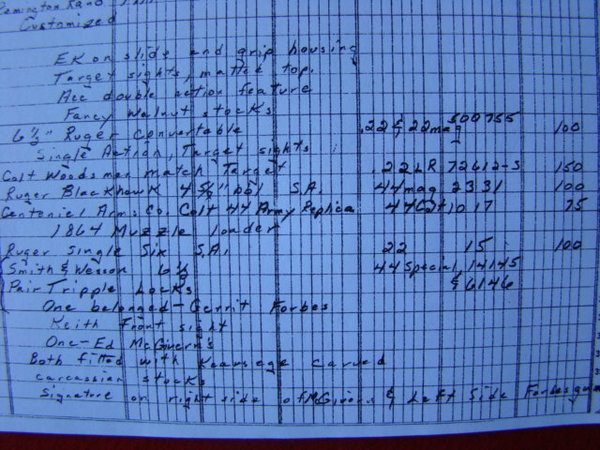 Remington Rand
Customized
EK on slide and grip housing
Target sights, matted top.
Acc double action feature
Fancy walnut stocks
6 1/2" Ruger Convertable .22 & 22mag 500755 100
Single Action, Target sights
Colt Woodsman match Target .22LR 72612-S 150
Ruger Blackhawk 4 5/8" bbl S.A. 44mag 2331 100
Centeniel Arms Co. Colt 44 Army Replica 44Cal 1017 75
1864 Muzzle loader
Ruger Single Six S.A. 22 15 100
Smith & Wesson 6 1/2 44 Special, 14145
Pair Tripple Locks & 6146
One belonged - Gerrit Forbes
Keith Front sight
One - Ed McGivern's
Both fitted with Kearsage carved
carcassian stocks
Signature on right side of McGivins & Left Side Forbes gun